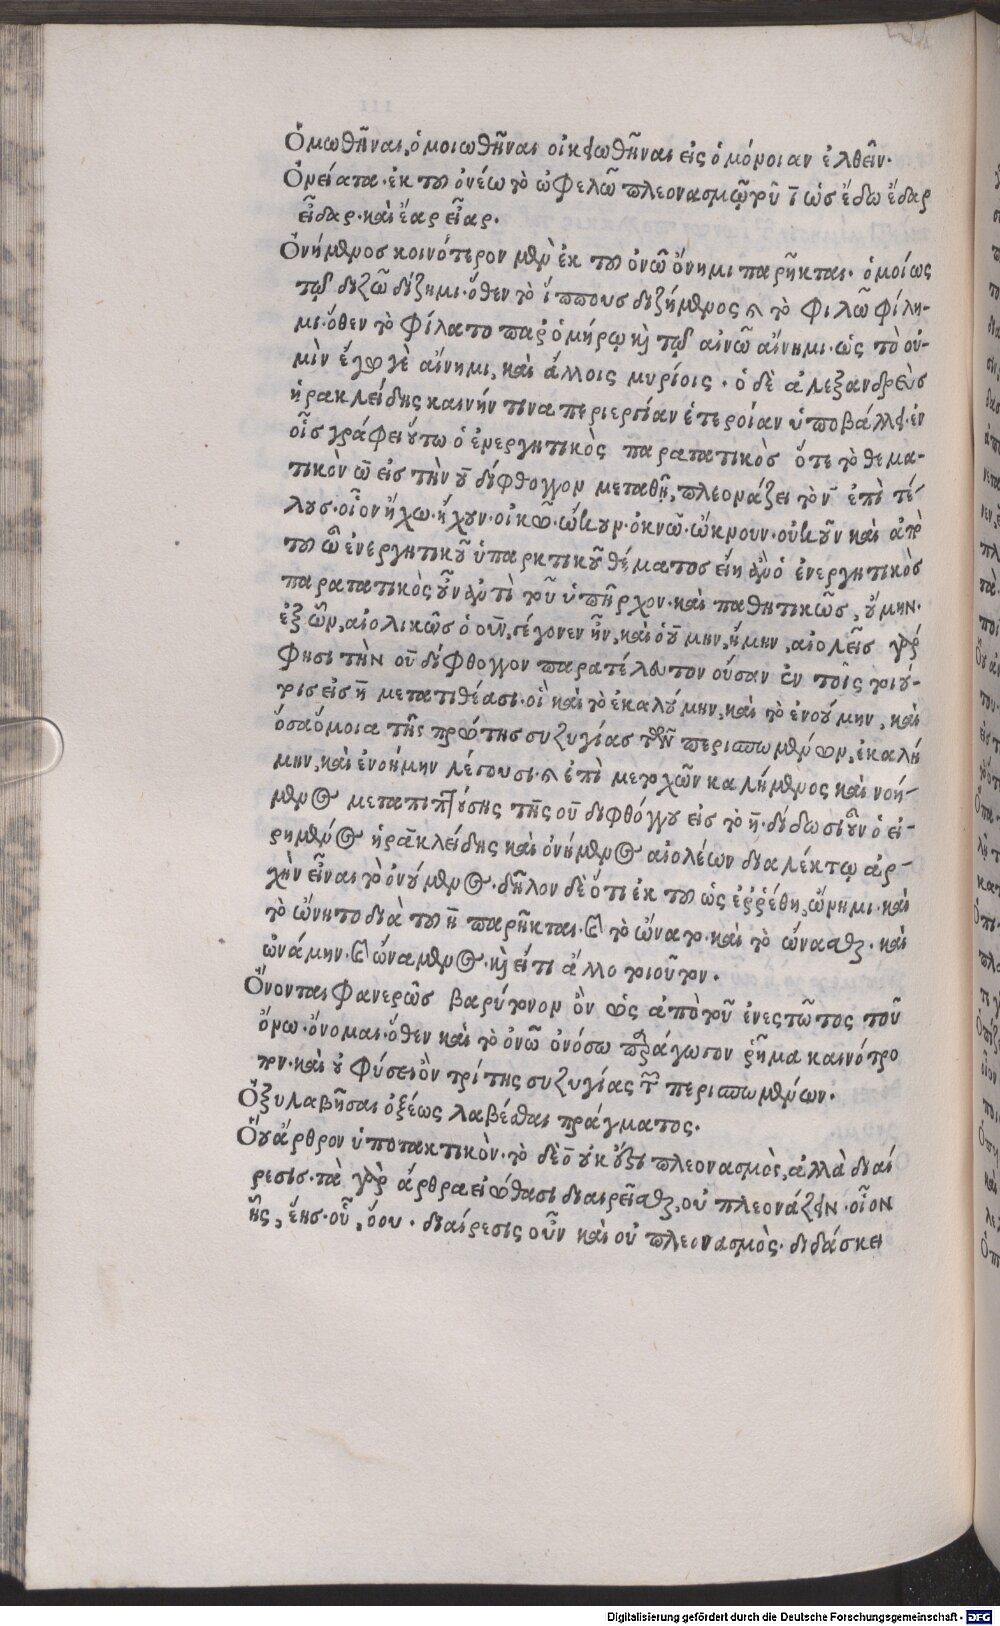 Ὁμωθῆναι, ὁμοιωθῆναι οἰκειωθῆναι εἰς ὁμόνοιαν ἐλθεῖν.
Ὀνείατα. ἐκ τοῦ ὀνέω τὸ ὠφελῶ πλεονασμῷ τοῦ ῑ ὡς ἔδω ἔδαρ
εἶδαρ. καὶ ἔαρ εἶαρ.
Ὀνήμενος κοινότερον μὲν ἐκ τοῦ ὀνῶ ὄνημι παρῆκται. ὁμοίως
τῷ διζῶ δίζημι. ὅθεν τὸ ἵππους διζήμενος καὶ τὸ φιλῶ φίλη-
μι. ὅθεν τὸ φίλατο παρ' ὁμήρῳ καὶ τῷ αἰνῶ αἴνημι. ὡς τὸ οὐ-
μὶν ἔγωγὲ αἴνημι, καὶ ἄλλοις μυρίοις. ὁ δὲ ἀλεξανδρεὺς
ἡρακλείδης καινήν τινα περιεργίαν ἑτεροίαν ὑποβάλλει. ἐν
οἷς γράφει οὕτω ὁ ἐνεργητικὸς παρατατικὸς ὅτε τὸ θεμα-
τικὸν ω̄ εἰς τὴν ου δίφθογγον μεταθῇ, πλεονάζει τὸ ν̄ ἐπὶ τέ-
λους. οἷον ἤχω. ἤχουν. οἰκῶ. ᾤκουν. ὀκνῶ. ὤκνουν. οὐκοῦν καὶ ἀπὸ
τοῦ ω̄ ἐνεργητικοῦ ὑπαρκτικοῦ θέματος εἴη ἂν ὁ ἐνεργητικὸς
παρατατικὸς οὖν ἀντὶ τοῦ ὑπῆρχον. καὶ παθητικῶς, οὔμην.
ἐξ ὧν, αἰολικῶς ὁ οὖν, γέγονεν ἦν, καὶ ὁ οὔμην, ἤμην, αἰολεῖς γάρ
φησι τὴν ου δίφθογγον παρατέλευτον οὖσαν ἐν τοῖς τοιού-
τοις εἰς η̄ μετατιθέασι. οἳ καὶ τὸ ἐκαλούμην, καὶ τὸ ἐνοούμην, καὶ
ὅσα ὅμοια τῆς πρώτης συζυγίας τῶν περισπωμένων, ἐκαλή
μην, καὶ ἐνοήμην λέγουσι. καὶ ἐπὶ μετοχῶν καλήμενος καὶ νοή-
μενος μεταπιπτούσης τῆς ου διφθόγγου εἰς τὸ η̄. δίδωσιν οὖν ὁ εἰ-
ρημένος ἡρακλείδης καὶ ὀνήμενος αἰολέων διαλέκτῳ ἀρ-
χὴν εἶναι τὸ ὀνούμενος. δῆλον δὲ ὅτι ἐκ τοῦ ὡς ἐρρέθη, ὤνημι. καὶ
τὸ ὤνητο διὰ τοῦ η̄ παρῆκται. καὶ τὸ ὤνατο. καὶ τὸ ὤνασθαι. καὶ
ὠνάμην. καὶ ὠνάμενος. καὶ εἴ τι ἄλλο τοιοῦτον.
Ὄνονται φανερῶς βαρύτονον ὂν ὡς ἀπὸ τοῦ ἐνεστῶτος τοῦ
ὄνω. ὄνομαι. ὅθεν καὶ τὸ ὀνῶ ὀνόσω παράγωγον ῥῆμα καινότρο
πον. καὶ οὐ φύσει ὂν τρίτης συζυγίας τῶν περισπωμένων.
Ὀξυλαβῆσαι ὀξέως λαβέσθαι πράγματος.
Ὅου ἄρθρον ὑποτακτικὸν. τὸ δὲ ο̄ οὐκ ἔστι πλεονασμὸς, ἀλλὰ διαί
ρεσις. τὰ γὰρ ἄρθρα εἰώθασι διαιρεῖσθαι, οὐ πλεονάζειν. οἷον
ἧς, ἕης. οὗ, ὅου. διαίρεσις οὖν καὶ οὐ πλεονασμὸς. διδάσκει
Digitalisierung gefördert durch die Deutsche Forschungsgemeinschaft - DFG